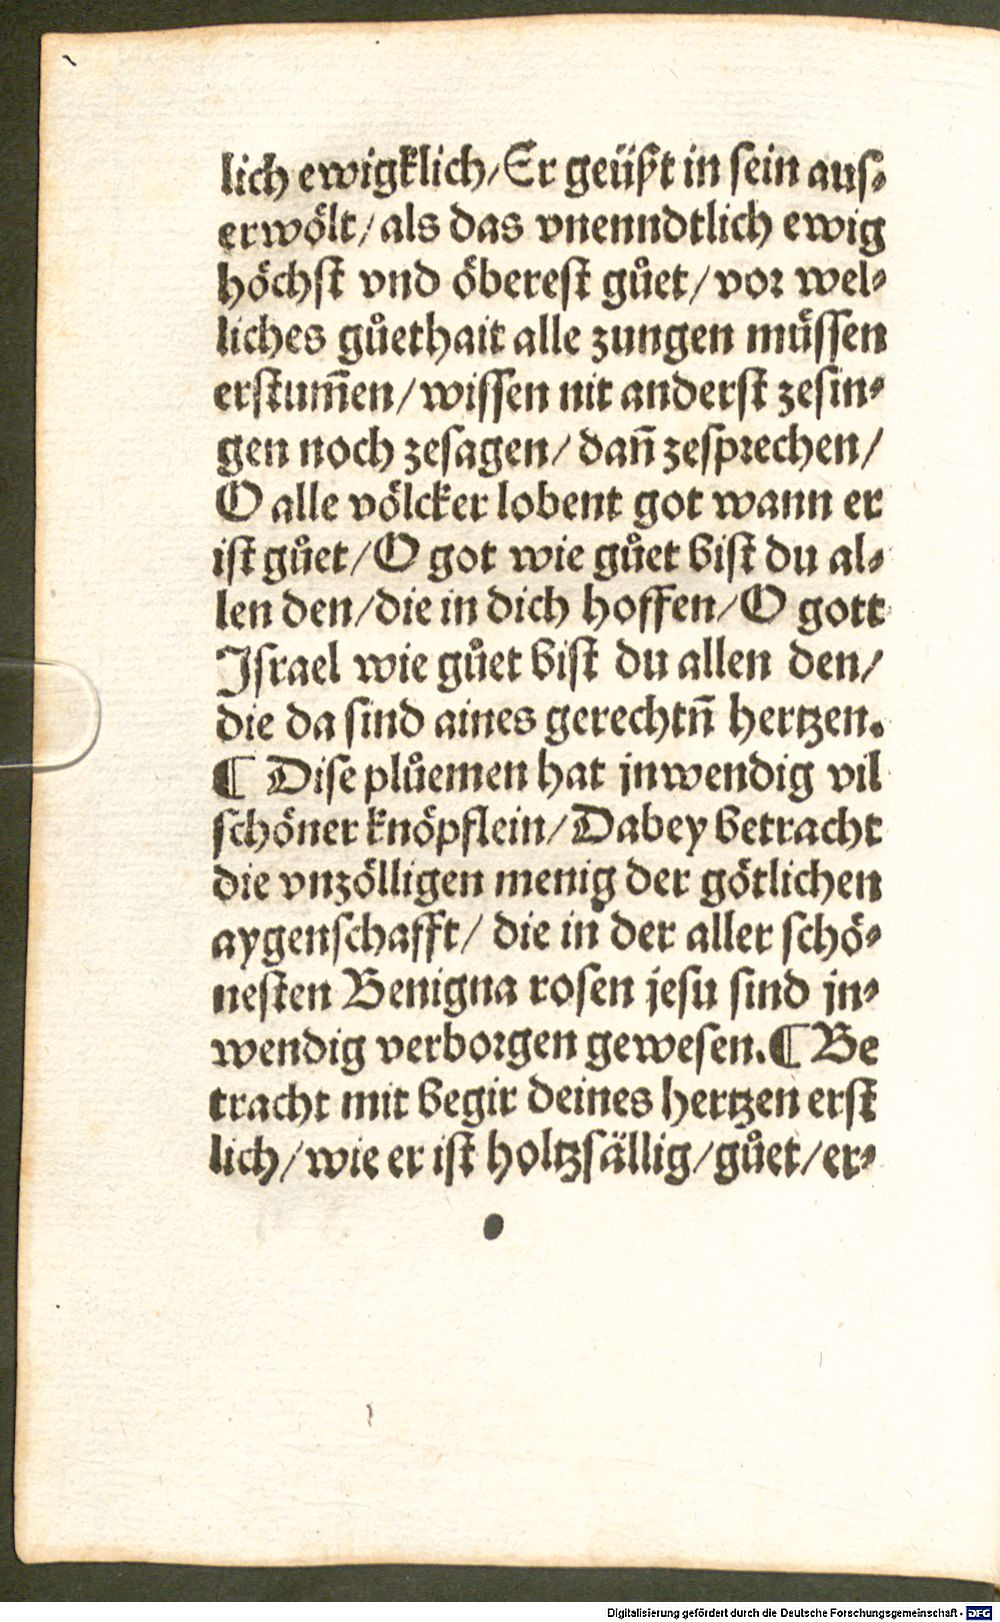 lich ewigklich/Er geüßt in sein aus⸗
erwölt/als das vnenndtlich ewig
höchst vnd öberest gůet/vor wel⸗
liches gůethait alle zungen müssen
erstum̃en/wissen nit anderst zesin⸗
gen noch zesagen/dañ zesprechen/
O alle völcker lobent got wann er
ist gůet/O got wie gůet bist du al⸗
len den/die in dich hoffen/O gott
Israel wie gůet bist du allen den/
die da sind aines gerechtñ hertzen.
¶ Dise plůemen hat jnwendig vil
schöner knöpflein/Dabey betracht
die vnzölligen menig der götlichen
aygenschafft/die in der aller schö⸗
nesten Benigna rosen jesu sind jn⸗
wendig verborgen gewesen.¶ Be
tracht mit begir deines hertzen erst
lich/wie er ist holtzsällig/gůet/er⸗
Digitalisierung gefördert durch die Deutsche Forschungsgemeinschaft - DFG